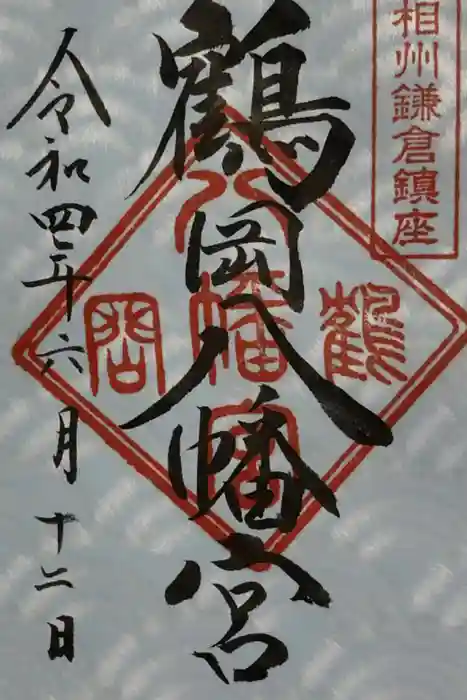 相州鎌倉鎮座
鶴岡八幡宮
鶴
岡
八幡宮
令和四年六月十二日